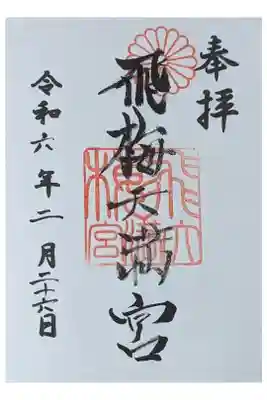 奉拝
飛梅天満宮
令和六年二月二十六日